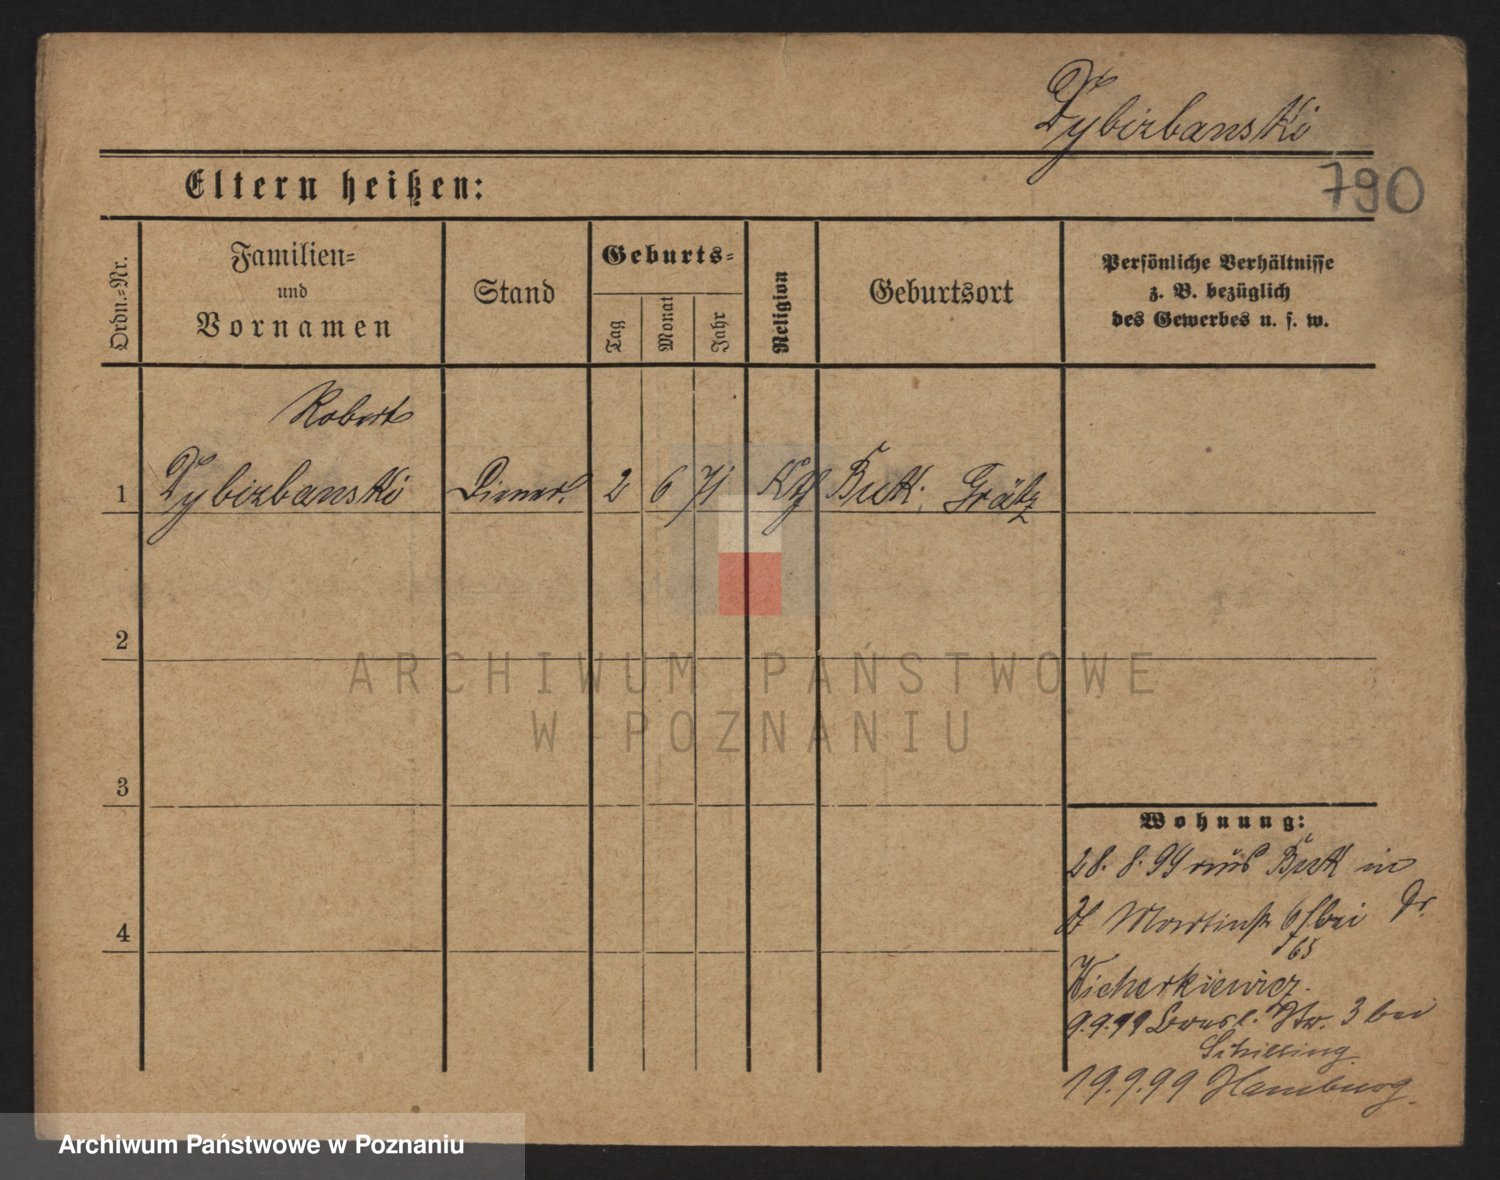 Dybizbanski
790
Eltern heißen:
Ordn.-Nr.
Familien-
und
Vornamen
Stand
Geburts-
Tag
Monat
Jahr
Religion
Geburtsort
Persönliche Verhältnisse
z. B. bezüglich
des Gewerbes u. s. w.
Robert
1 Dybizbanski Diener 2 6 71 Kth Buk. Grätz
2
3
4
Wohnung:
28. 8. 99 aus Buk in
St Martinstr 6 bei Dr.
765
Wicherkiewicz.
9.9.99 Bresl. Str. 3 bei
Schilling.
19.9.99 Hamburg.
ARCHIWUM PAŃSTWOWE
W POZNANIU
Archiwum Państwowe w Poznaniu